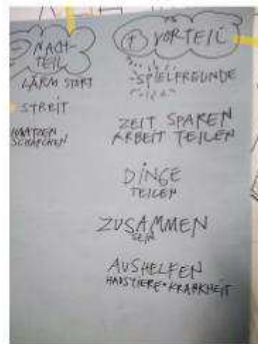 NACH-
TEIL
LÄRM START
STREIT
VORTEIL
SPIELFREUNDE
ZEIT SPAREN
ARBEIT TEILEN
DINGE
TEILEN
ZUSAMMEN
SEIN
AUSHELFEN
HAUSTIERE + KRANKHEIT